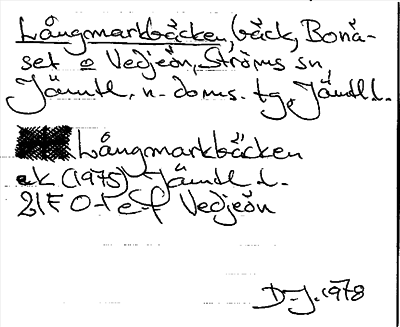 Långmarkbäcken, bäck, Bonä-
set o Vedjeön, Ströms sn
Jämtl. n. doms. tg, Jämtl l.
Långmarkbäcken
ek (1975) Jämtl. l.
21F 0-1 e-f Vedjeön
D-J. 1978